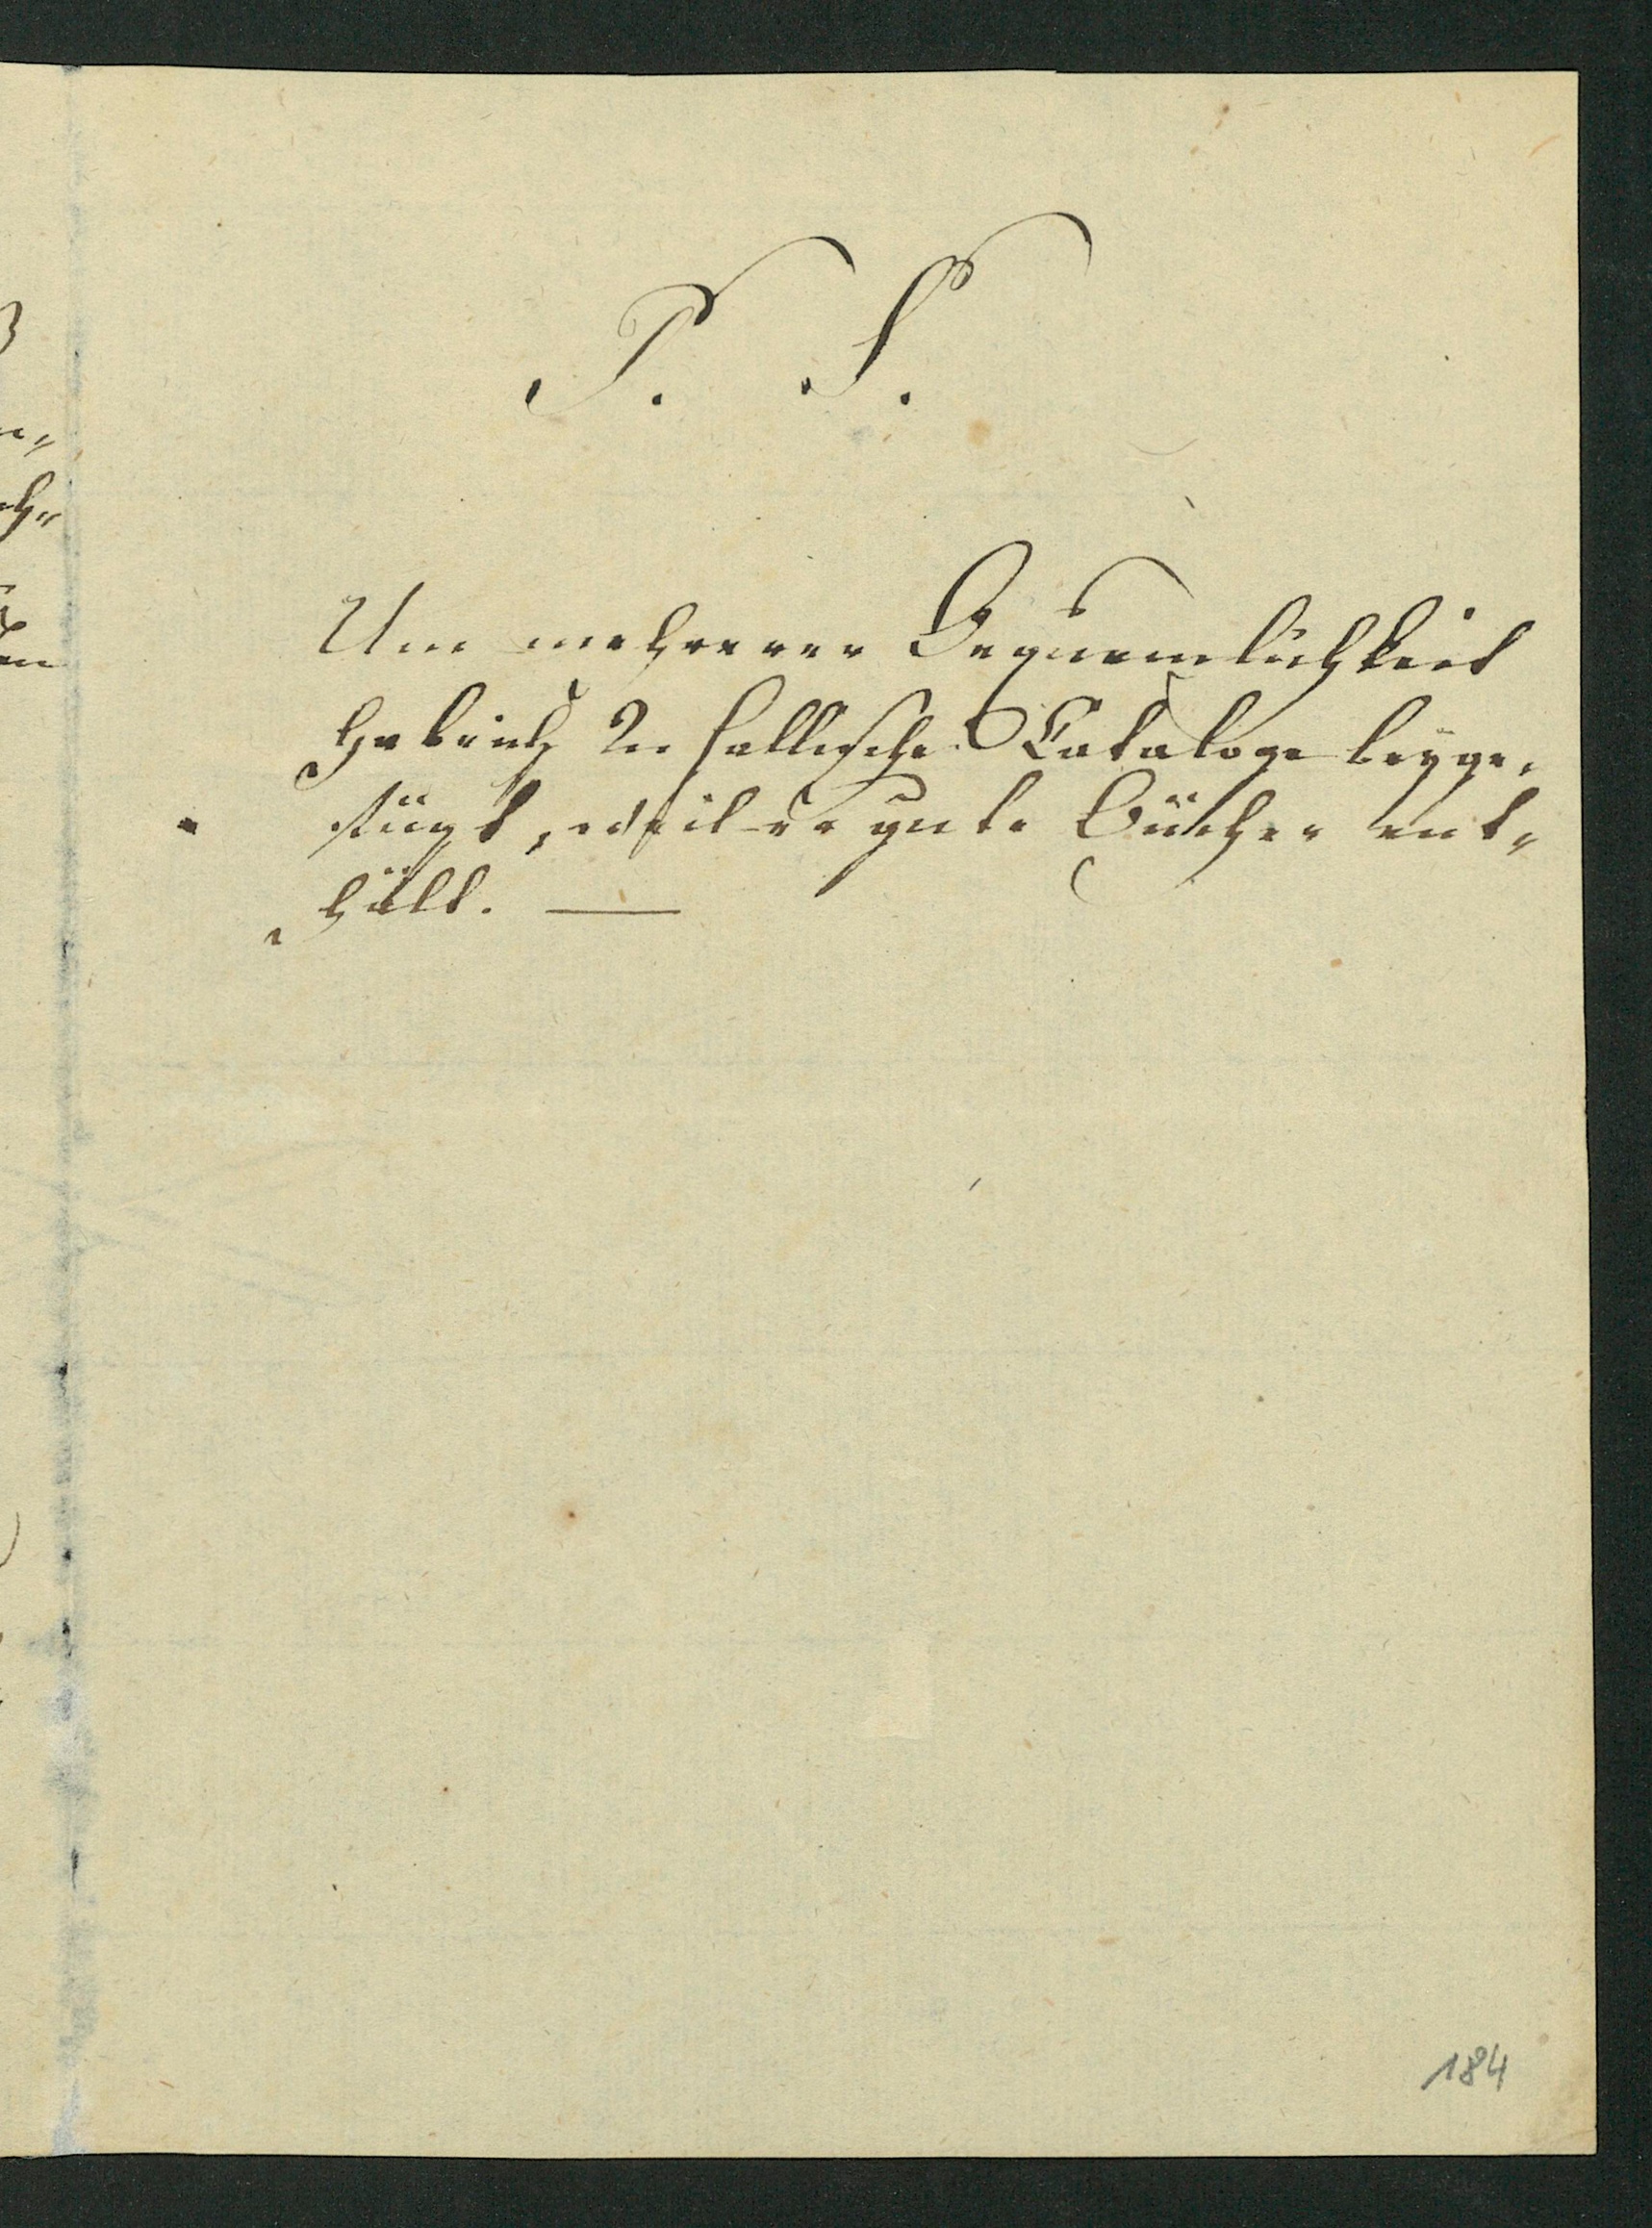 P. S.
Um mehrerer Bequemlichkeit
habe ich den hallischen Cataloge beyge-
fügt, weil er gute Bücher ent-
hält. —
184